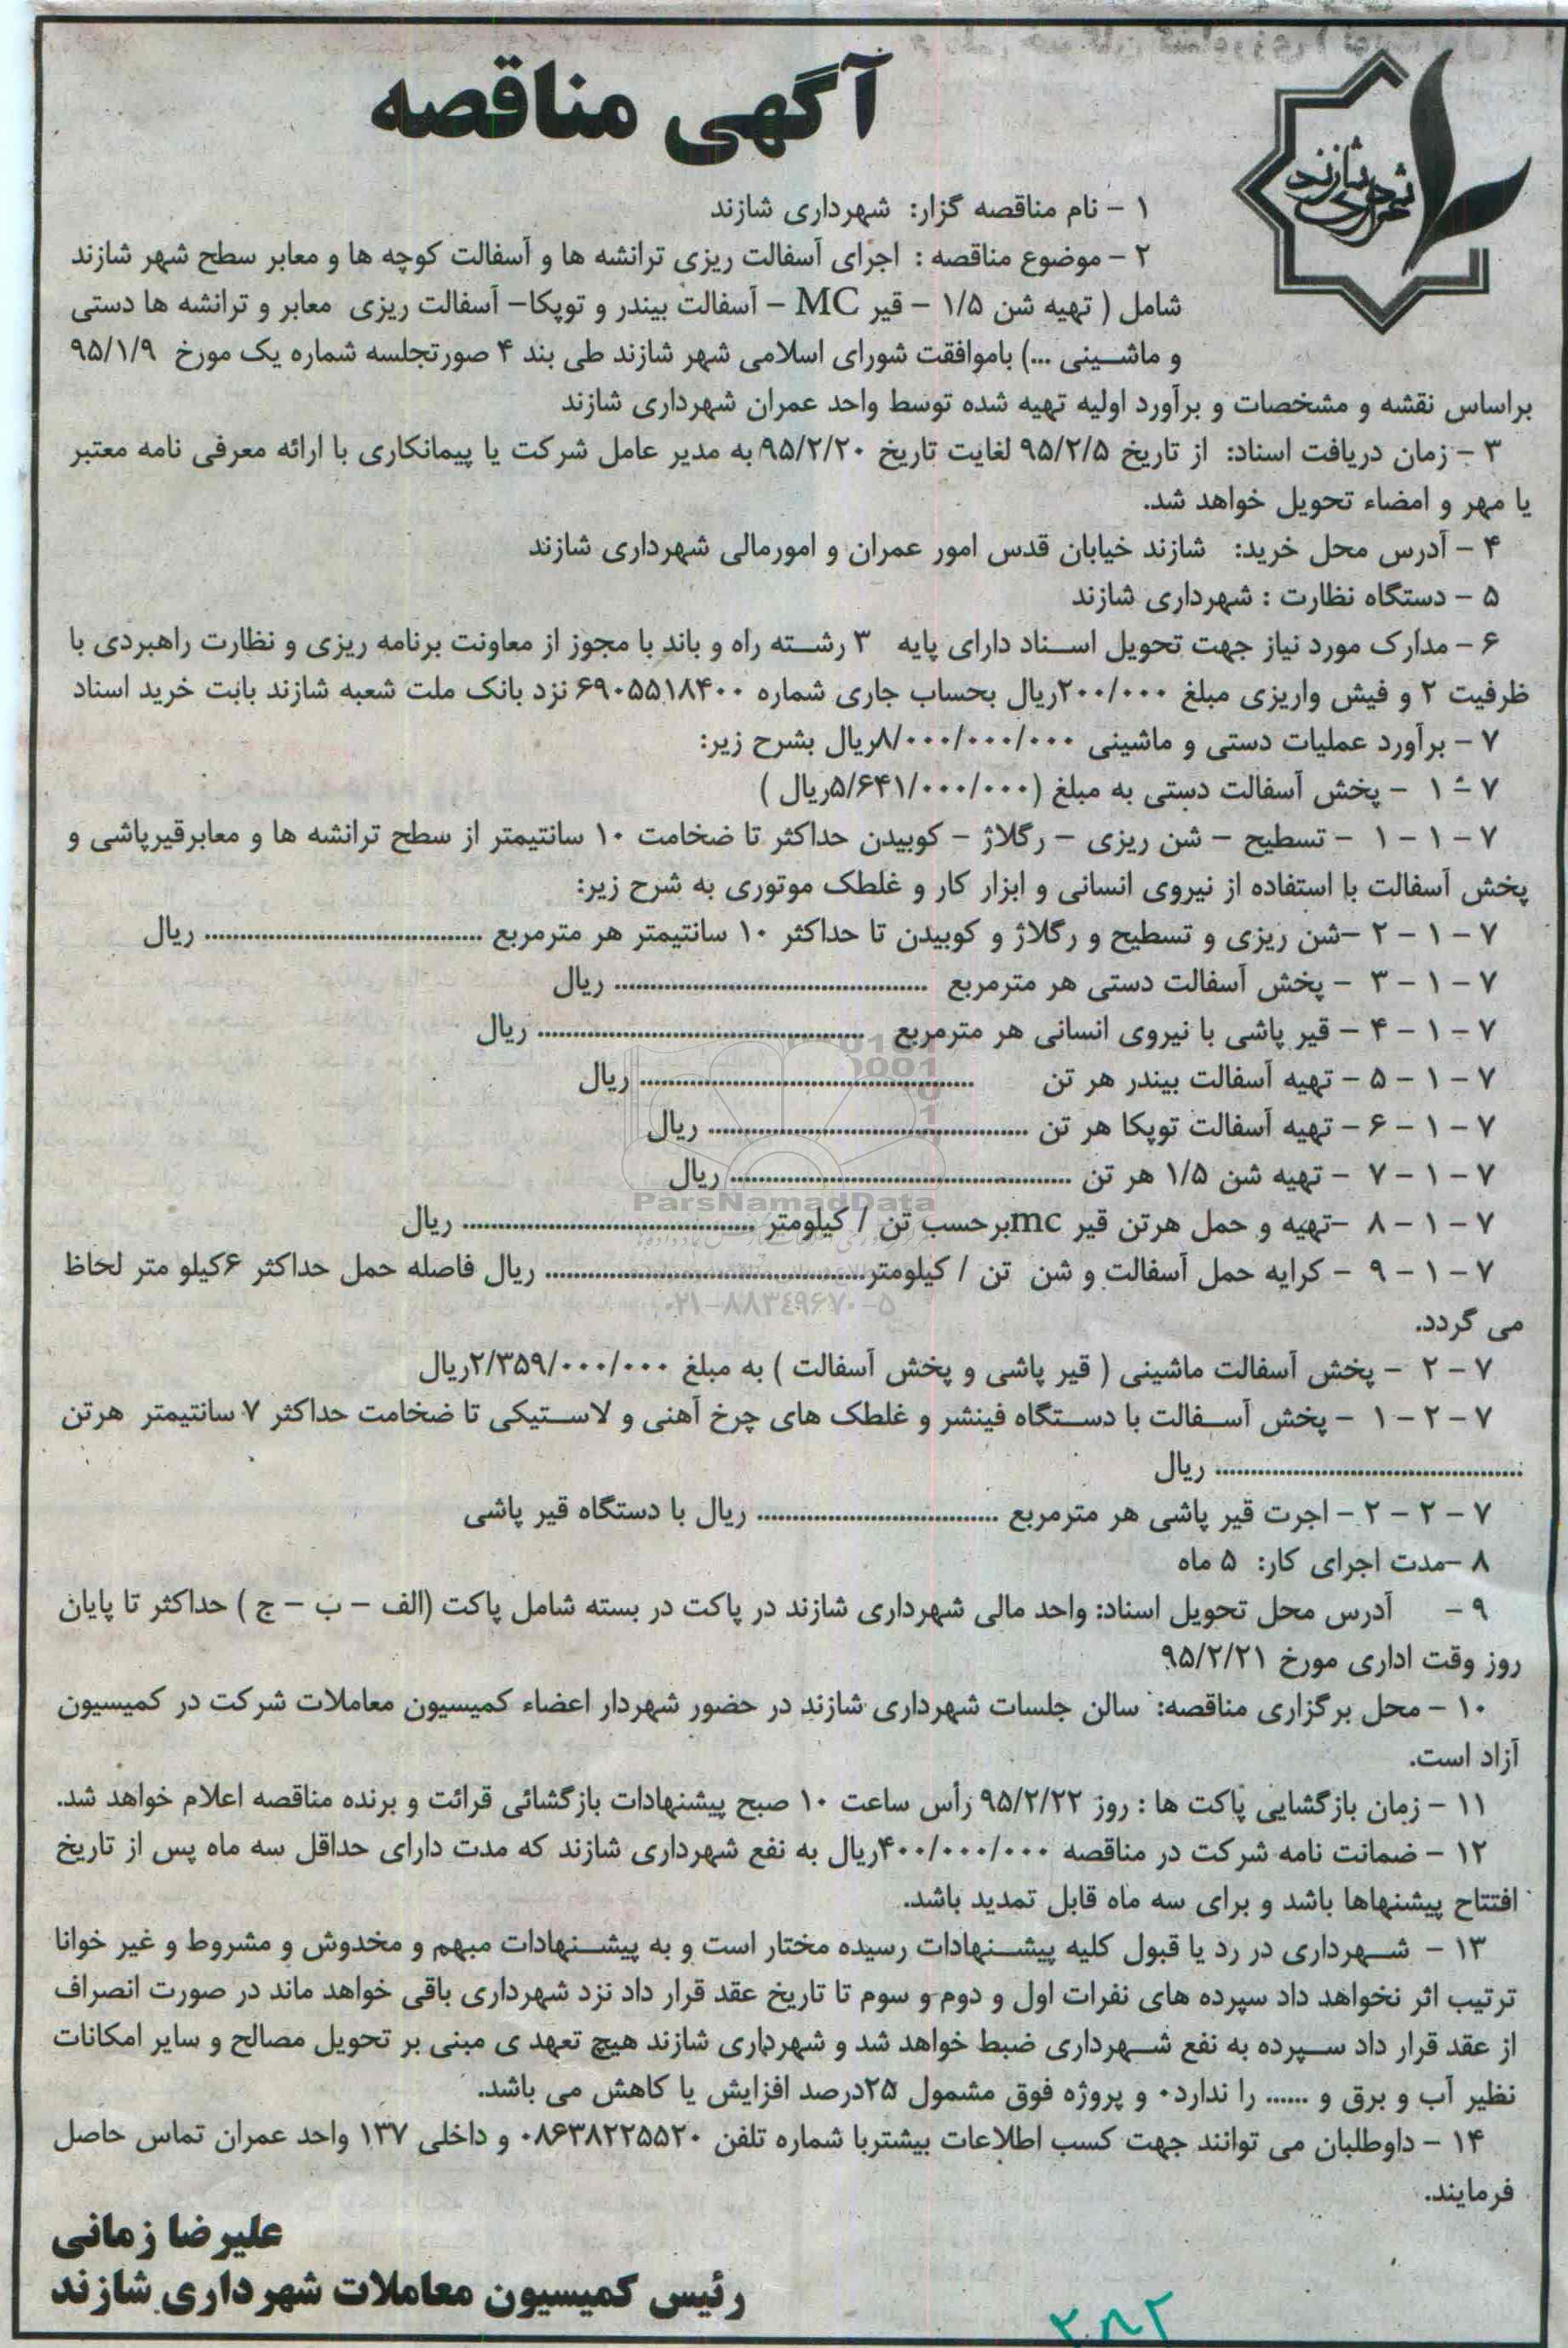 آگهی مناقصه
شهرداری شازند
۱ - نام مناقصه گزار: شهرداری شازند
۲ - موضوع مناقصه : اجرای آسفالت ریزی ترانشه ها و آسفالت کوچه ها و معابر سطح شهر شازند
شامل ( تهیه شن ۱/۵ - قیر MC - آسفالت بیندر و توپکا- آسفالت ریزی معابر و ترانشه ها دستی
و ماشینی ...) باموافقت شورای اسلامی شهر شازند طی بند ۴ صورتجلسه شماره یک مورخ ۹۵/۱/۹
براساس نقشه و مشخصات و برآورد اولیه تهیه شده توسط واحد عمران شهرداری شازند
۳ - زمان دریافت اسناد: از تاریخ ۹۵/۲/۵ لغایت تاریخ ۹۵/۲/۲۰ به مدیر عامل شرکت یا پیمانکاری با ارائه معرفی نامه معتبر
با مهر و امضاء تحویل خواهد شد.
۴ - آدرس محل خرید: شازند خیابان قدس امور عمران و امورمالی شهرداری شازند
۵ - دستگاه نظارت : شهرداری شازند
۶ - مدارک مورد نیاز جهت تحویل اسناد دارای پایه ۳ رشته راه و باند با مجوز از معاونت برنامه ریزی و نظارت راهبردی با
ظرفیت ۲ و فیش واریزی مبلغ ۲۰۰/۰۰۰ریال بحساب جاری شماره ۶۹۰۵۵۱۸۴۰۰ نزد بانک ملت شعبه شازند بابت خرید اسناد
۷ - برآورد عملیات دستی و ماشینی ۸/۰۰۰/۰۰۰/۰۰۰ریال بشرح زیر:
۷ - ۱ - پخش آسفالت دستی به مبلغ (۵/۶۴۱/۰۰۰/۰۰۰ریال )
۷ - ۱ - ۱ - تسطیح - شن ریزی - رگلاژ - کوبیدن حداکثر تا ضخامت ۱۰ سانتیمتر از سطح ترانشه ها و معابرقیرپاشی و
پخش آسفالت با استفاده از نیروی انسانی و ابزار کار و غلطک موتوری به شرح زیر:
۷ - ۱ - ۲ -شن ریزی و تسطیح و رگلاژ و کوبیدن تا حداکثر ۱۰ سانتیمتر هر مترمربع ........................................ ریال
۷ - ۱ - ۳ - پخش آسفالت دستی هر مترمربع ........................................ ریال
۷ - ۱ - ۴ - قیر پاشی با نیروی انسانی هر مترمربع ........................................ ریال
۷ - ۱ - ۵ - تهیه آسفالت بیندر هر تن ........................................ ریال
۷ - ۱ - ۶ - تهیه آسفالت توپکا هر تن ........................................ ریال
۷ - ۱ - ۷ - تهیه شن ۱/۵ هر تن ........................................ ریال
ParsNamadData
۷ - ۱ - ۸ -تهیه و حمل هرتن قیر mcبرحسب تن / کیلومتر ........................................ ریال
۷ - ۱ - ۹ - کرایه حمل آسفالت و شن تن / کیلومتر........................................ ریال فاصله حمل حداکثر ۶کیلو متر لحاظ
۰۲۱-۸۸۳۴۹۶۷۰-۵
می گردد.
۷ - ۲ - پخش آسفالت ماشینی ( قیر پاشی و پخش آسفالت ) به مبلغ ۲/۳۵۹/۰۰۰/۰۰۰ریال
۷ - ۲ - ۱ - پخش آسفالت با دستگاه فینشر و غلطک های چرخ آهنی و لاستیکی تا ضخامت حداکثر ۷ سانتیمتر هرتن
........................................ ریال
۷ - ۲ - ۲ - اجرت قیر پاشی هر مترمربع ................................ ریال با دستگاه قیر پاشی
۸ -مدت اجرای کار: ۵ ماه
۹ - آدرس محل تحویل اسناد: واحد مالی شهرداری شازند در پاکت در بسته شامل پاکت (الف - ب - ج ) حداکثر تا پایان
روز وقت اداری مورخ ۹۵/۲/۲۱
۱۰ - محل برگزاری مناقصه: سالن جلسات شهرداری شازند در حضور شهردار اعضاء کمیسیون معاملات شرکت در کمیسیون
آزاد است.
۱۱ - زمان بازگشایی پاکت ها : روز ۹۵/۲/۲۲ رأس ساعت ۱۰ صبح پیشنهادات بازگشائی قرائت و برنده مناقصه اعلام خواهد شد.
۱۲ - ضمانت نامه شرکت در مناقصه ۴۰۰/۰۰۰/۰۰۰ریال به نفع شهرداری شازند که مدت دارای حداقل سه ماه پس از تاریخ
افتتاح پیشنهاها باشد و برای سه ماه قابل تمدید باشد.
۱۳ - شهرداری در رد یا قبول کلیه پیشنهادات رسیده مختار است و به پیشنهادات مبهم و مخدوش و مشروط و غیر خوانا
ترتیب اثر نخواهد داد سپرده های نفرات اول و دوم و سوم تا تاریخ عقد قرار داد نزد شهرداری باقی خواهد ماند در صورت انصراف
از عقد قرار داد سپرده به نفع شهرداری ضبط خواهد شد و شهرداری شازند هیچ تعهد ی مبنی بر تحویل مصالح و سایر امکانات
نظیر آب و برق و ...... را ندارد۰ و پروژه فوق مشمول ۲۵درصد افزایش یا کاهش می باشد.
۱۴ - داوطلبان می توانند جهت کسب اطلاعات بیشتربا شماره تلفن ۰۸۶۳۸۲۲۵۵۲۰ و داخلی ۱۳۷ واحد عمران تماس حاصل
فرمایند.
علیرضا زمانی
رئیس کمیسیون معاملات شهرداری شازند